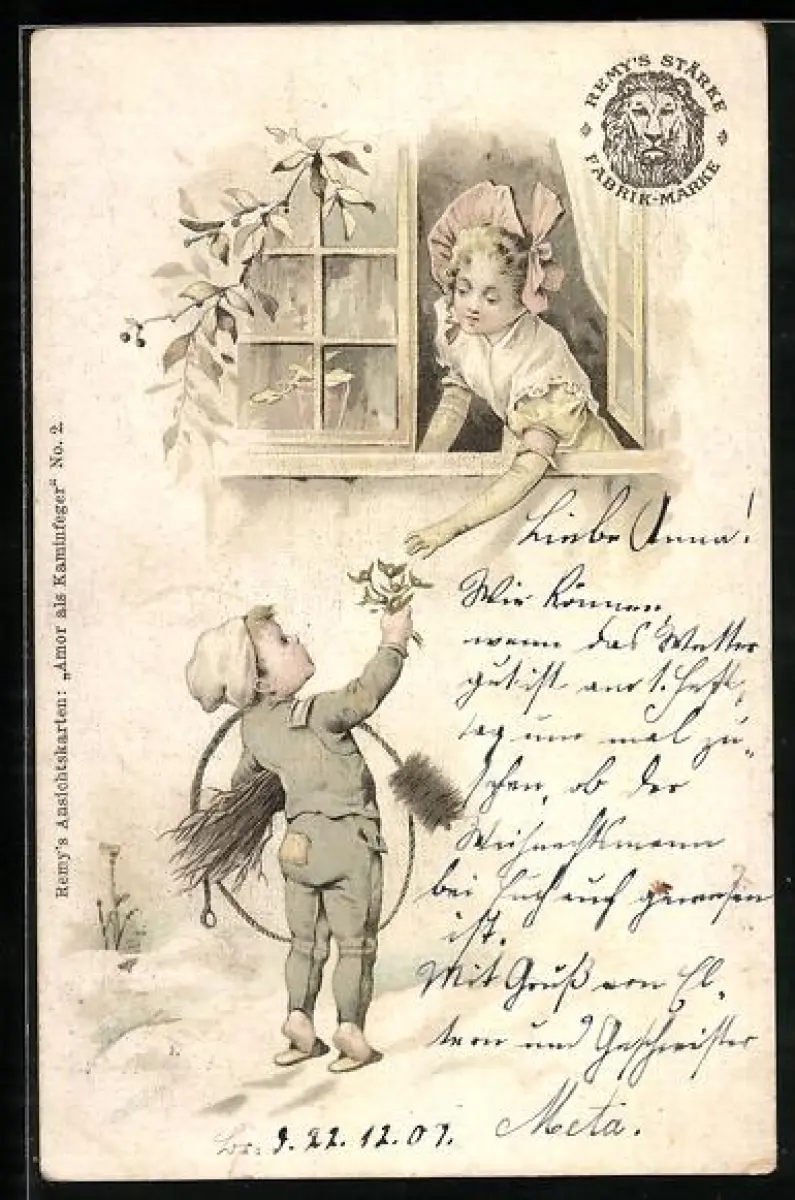 REMY'S STÄRKE
FABRIK-MARKE
Remy's Ansichtskarten: „Amor als Kaminfeger" No. 2.
Liebe Anna!
Wir können,
wenn das Wetter
gut ist am 1. Fest-
tag mal zu-
sehen, ob der
Weihnachtsmann
bei Euch auch gewesen
ist.
Mit Gruß von El-
tern und Geschwister
Meta.
22.12.07.